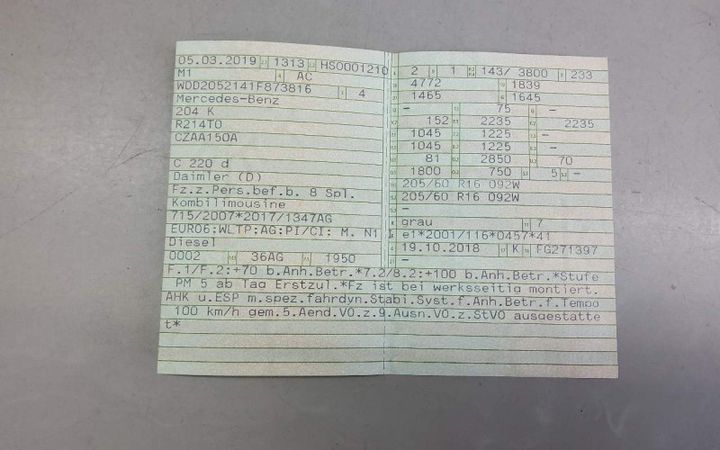 05.03.2019 1313 HS0001210
M1 AC
WDD2052141F873816 4
Mercedes-Benz
204 K
R214T0
CZAA150A
C 220 d
Daimler (D)
Fz.z.Pers.bef.b. 8 Spl.
Kombilimousine
715/2007*2017/1347AG
EURO6:WLTP:AG:PI/CI: M, N1 I
Diesel
0002 36AG 1950
2 1 143/ 3800 233
4772 1839
1465 1645
– 75 –
152 2235 2235
1045 1225 –
1045 1225 –
81 2850 70
1800 750 5 –
205/60 R16 092W
205/60 R16 092W
–
grau 7
e1*2001/116*0457*41
19.10.2018 K FG271397
–
F.1/F.2:+70 b.Anh.Betr.*7.2/8.2:+100 b.Anh.Betr.*Stufe
PM 5 ab Tag Erstzul.*Fz ist bei werksseitig montiert.
AHK u.ESP m.spez.fahrdyn.Stabi.Syst.f.Anh.Betr.f.Tempo
100 km/h gem.5.Aend.VO.z.9.Ausn.VO.z.StVO ausgestatte
t*